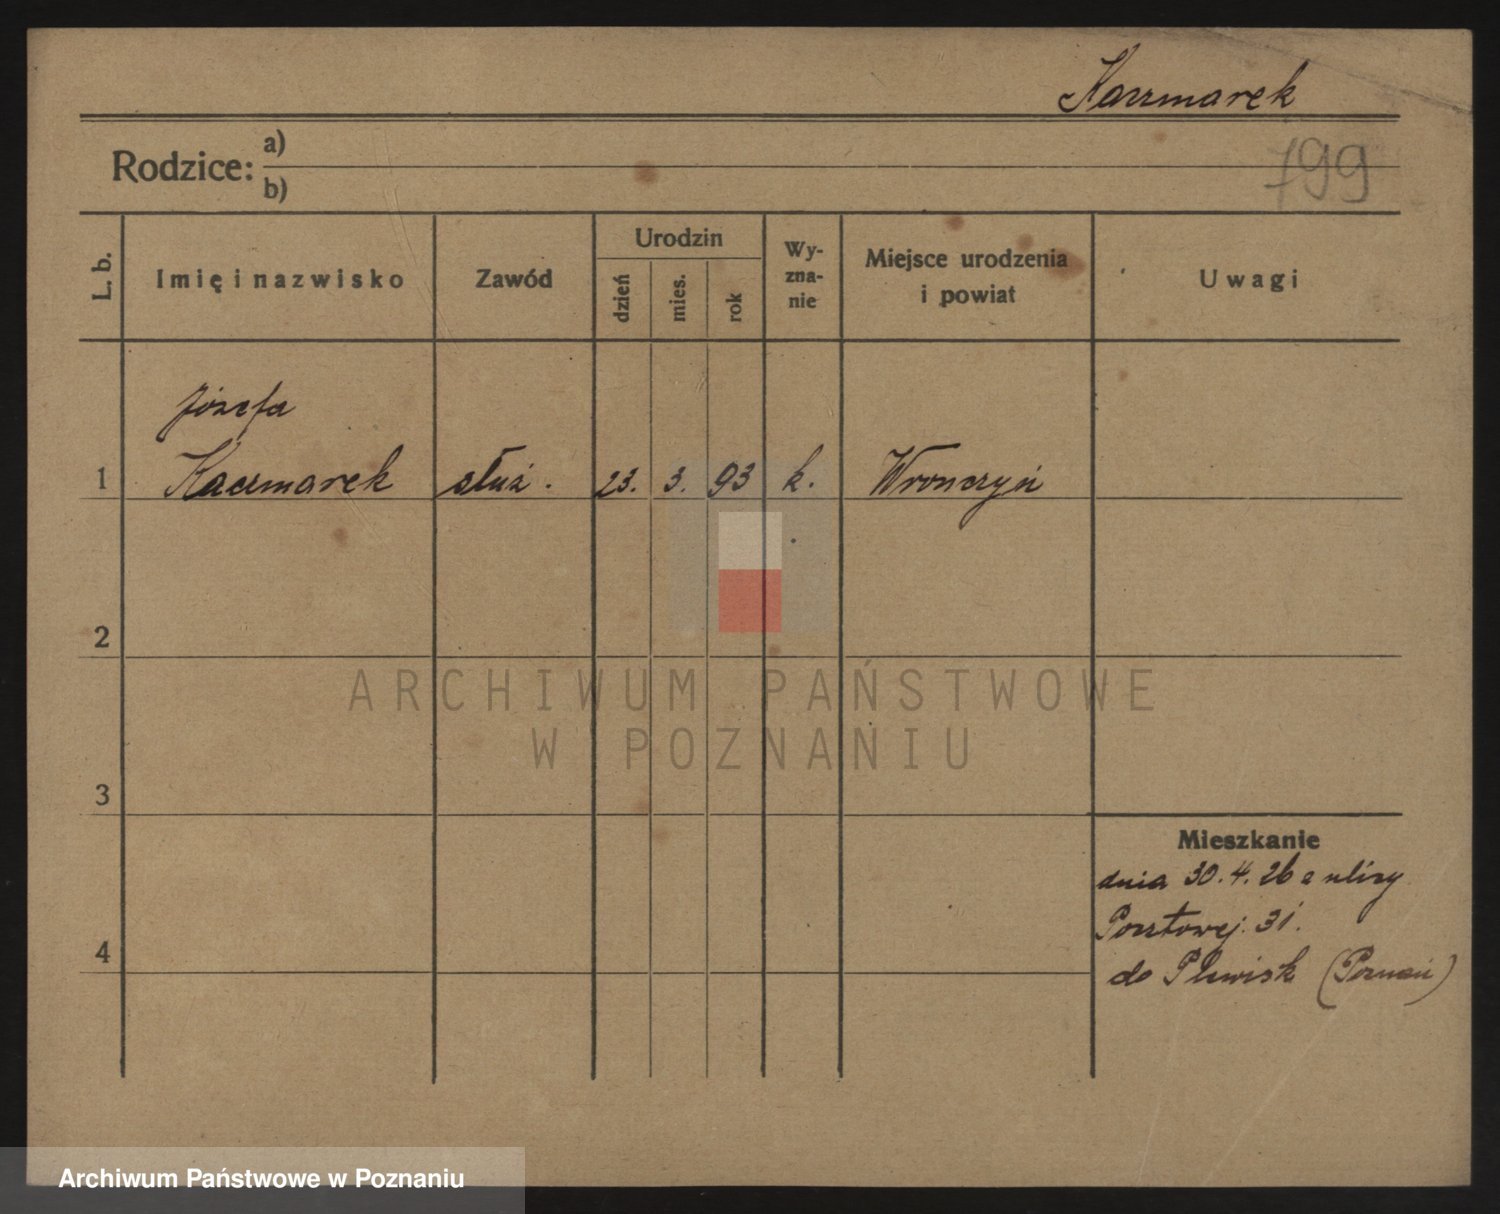 Kaczmarek
Rodzice: a)
b)
799
L. b.
Imię i nazwisko
Zawód
Urodzin
dzień
mies.
rok
Wy-
zna-
nie
Miejsce urodzenia
i powiat
Uwagi
Józefa
1 Kaczmarek służ. 23. 3. 93 k. Wronczyń
2
3
4
Mieszkanie
dnia 30. 4. 26 z ulicy
Pocztowej 31.
do Plewisk (Poznań)
ARCHIWUM PAŃSTWOWE
W POZNANIU
Archiwum Państwowe w Poznaniu